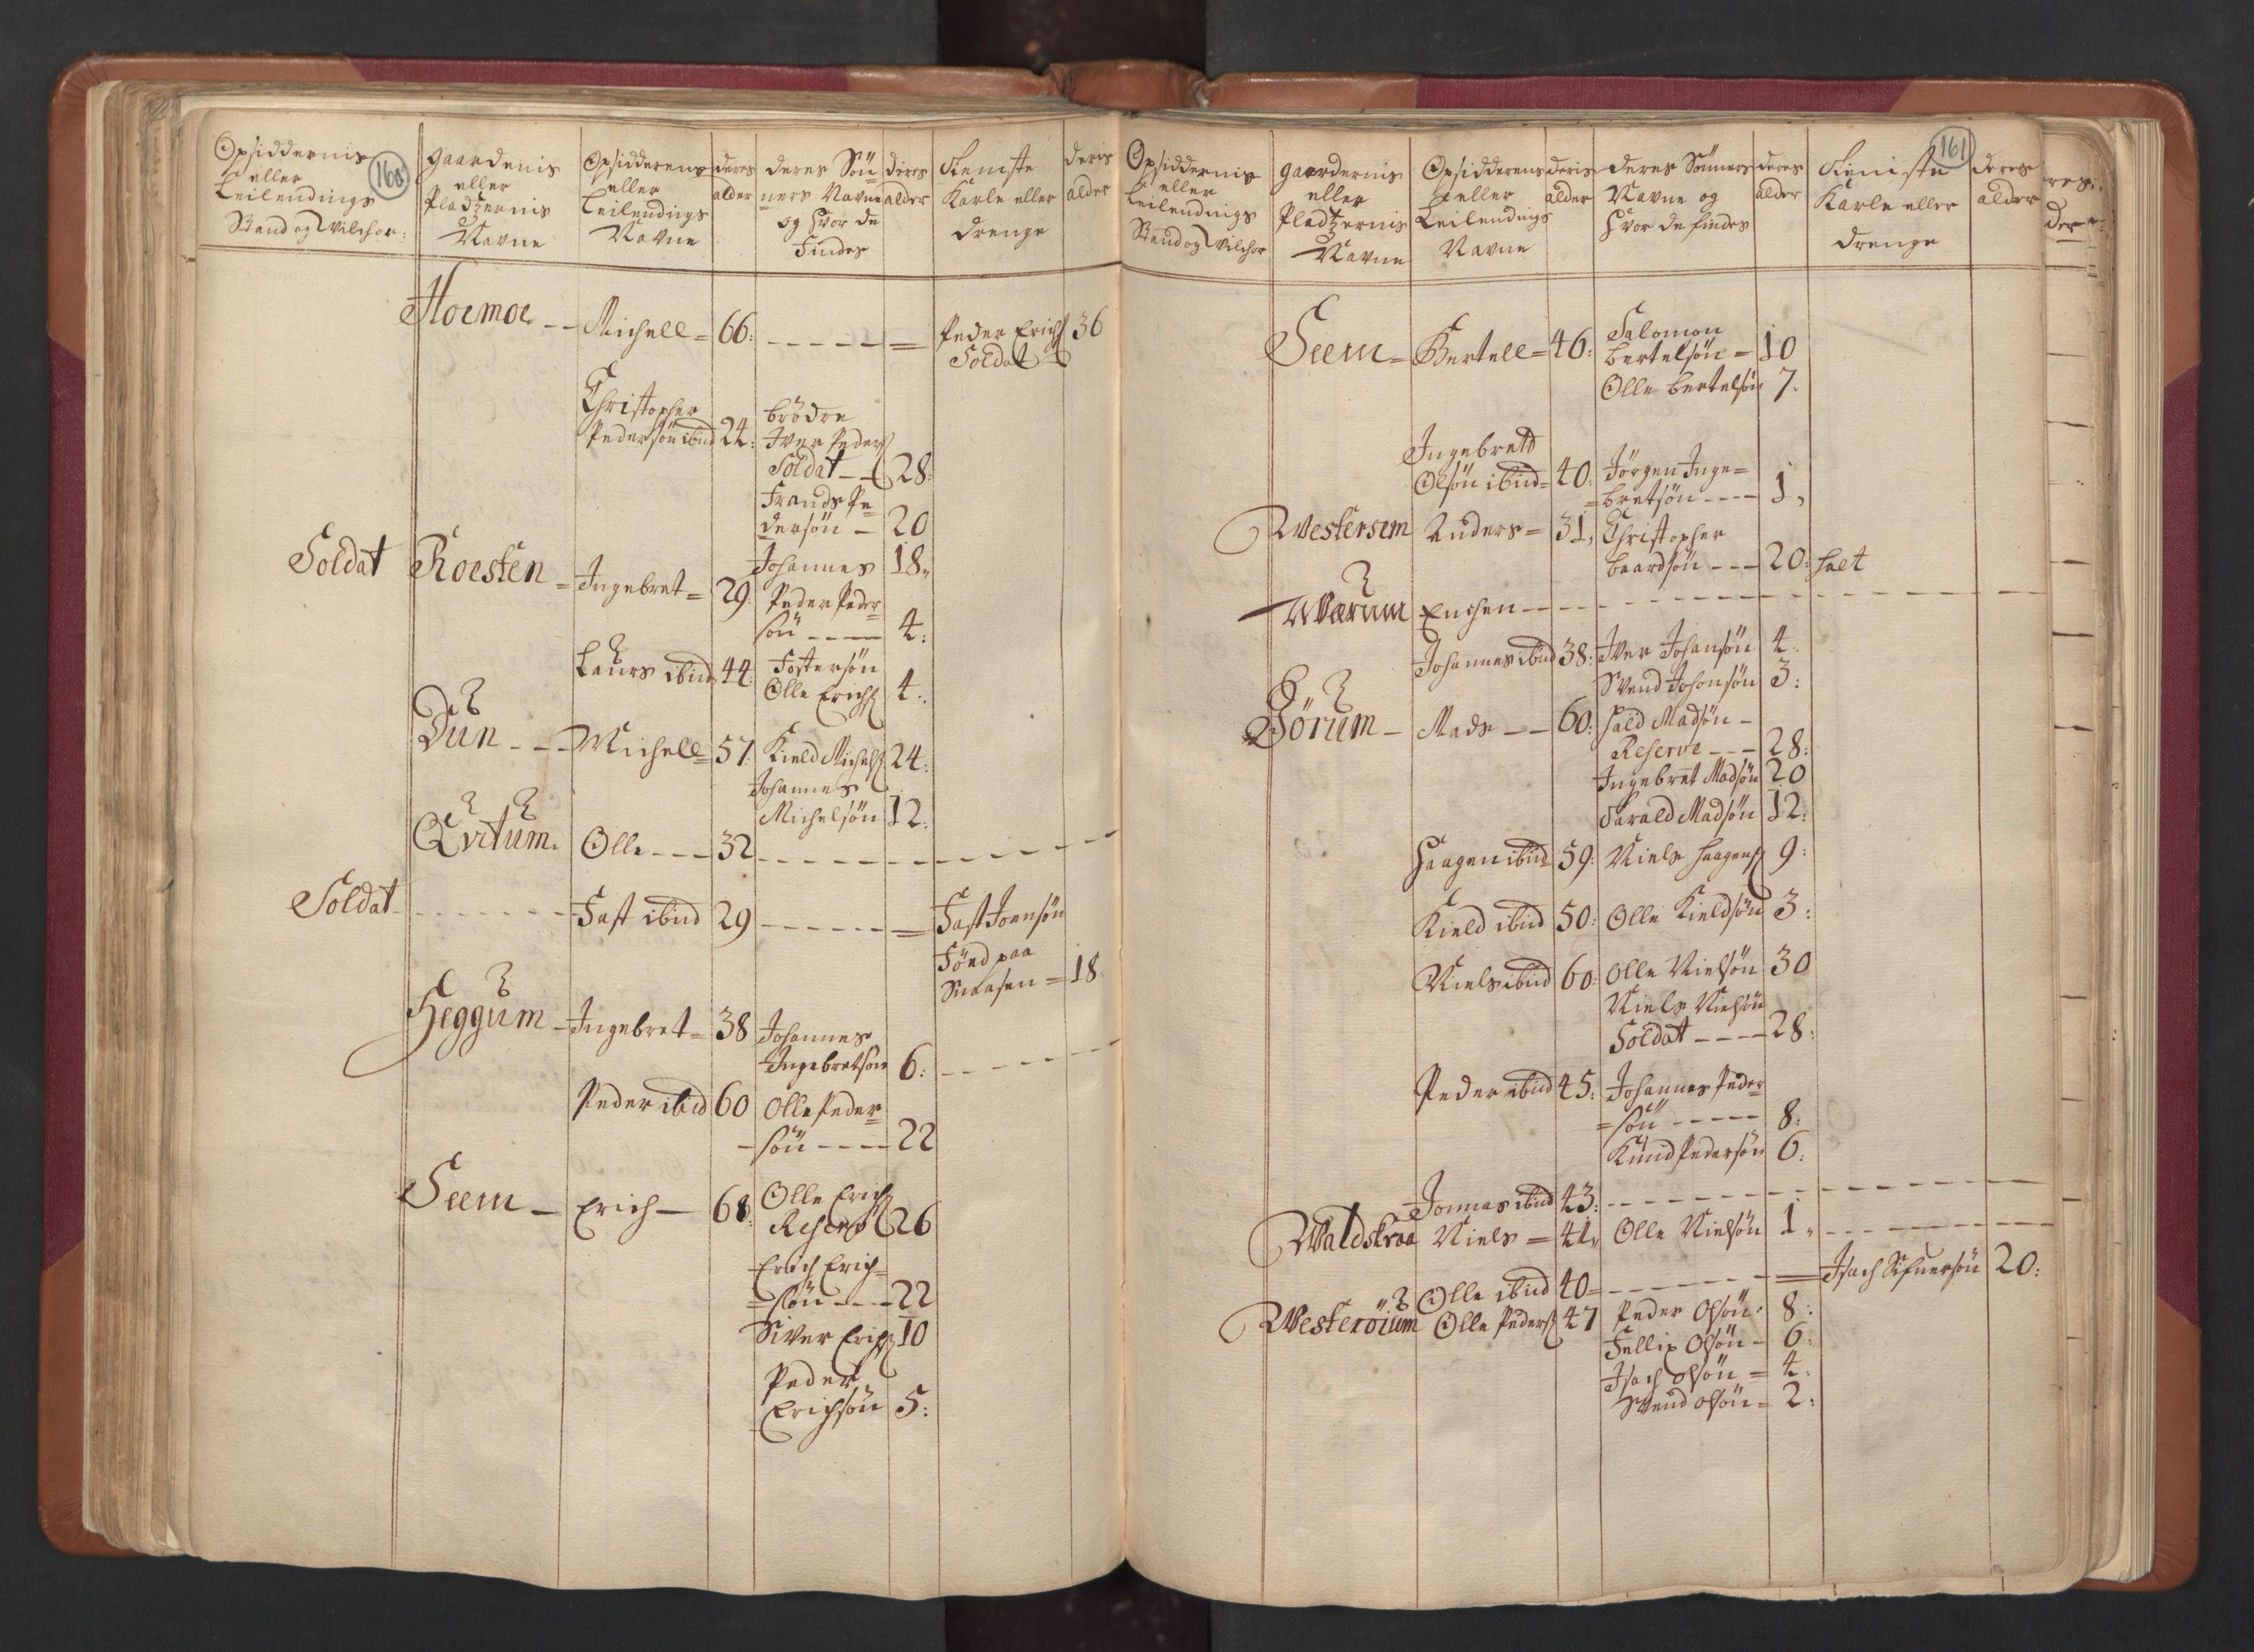 160
Opsiddernis eller Leilendings Stand og Vilchor:
gaardenis eller Pladzernis Navne
Opsidderens eller Leilendings Navne
deres alder
deres Sönners Navne og hvor de Findes
deres alder
Tieniste Karle eller drenge
deris alder
Hoemoe -- Michell = 66: ----- = Peder Erichs: 36
Soldat
Christopher
Pedersön ibid 24: brödre
Iver Peders:
Soldat -- 28:
Frands Pe=
dersön - 20
Johannes 18.
Soldat Roesten = Ingebret = 29. Peder Peder=
sön ---- 4:
Laurs ibid 44: Fostersön
Olle Erichs: 4:
Dun --- Michell = 57. Kield Michels: 24:
Johannes
Michelsön 12:
Qvitum. Olle --- 32 ----------
Soldat ------ Fast ibid 29 ----- = Fast Joensön
Föed paa
Snaasen = 18
Heggum - Ingebret = 38 Johannes
Ingebretsön 6: -----
Peder ibid 60 Olle Peder=
sön ---- 22
Seem - Erich - 68: Olle Erichs:
Reserve 26
Erich Erich=
sön --- 22
Siver Erichs: 10
Peder
Erichsön 5:
161
Opsiddernis eller Leilendings Stand og Vilchor
gaardernis eller Pladzernis Navne
Opsidderens eller Leilendings Navne
deris alder
deres Sönners Navne og hvor de findes
deres alder
Tieniste Karle eller drenge
deres alder
Seem = Bertell = 46: Salomon
bertelsön = 10
Olle bertelsön 7.
Ingebrett
Olsön ibid = 40: Jörgen Inge=
=bretsön ---- 1,
Westersem Anders = 31, Christopher
baardsön --- 20: halt
Wærum Enchen ----------
Johannes ibid 38: Iver Johansön 4:
Svend Johonsön 3:
Sörum - Mads -- 60: hald Madsön -
Reserve --- 28:
Ingebret Madsön 20
Harald Madsön 12:
Haagen ibid 59: Niels haagens: 9:
Kield ibid 50: Olle Kieldsön 3:
Niels ibid 60: Olle Nielsön 30
Niels Nielsön
Soldat ---- 28:
Peder ibid 45: Johannes Peder=
=sön ----- 8:
Knud Pedersön 6:
Jonnas ibid 43: ----------
Waldskraa Niels = 44, Olle Nielsön 1, ------
Olle ibid 40 = ------ = Isach Sifuersön 20:
Westeröium Olle Peders: 47 Peder Olsön: 8:
Fellip Olsön - 6:
Isach olsön = 4:
Svend olsön = 2: